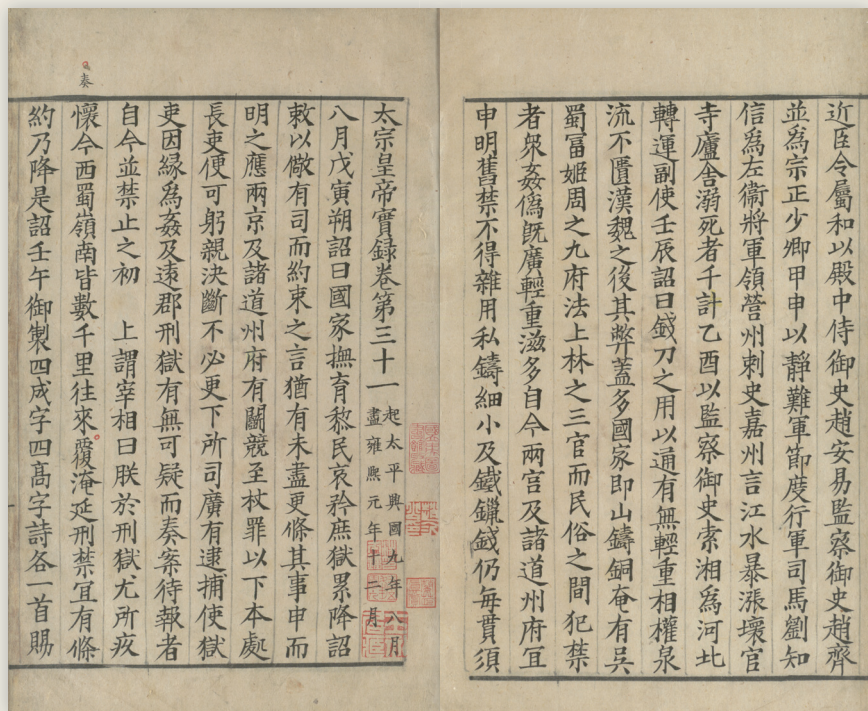 近臣令屬和以殿中侍御史趙安易監察御史趙齊
並爲宗正少卿甲申以靜難軍節度行軍司馬劉知
信爲左衞將軍領營州刺史嘉州言江水暴漲壞官
寺廬舍溺死者千計乙酉以監察御史索湘爲河北
轉運副使壬辰詔曰錢刀之用以通有無輕重相權泉
流不匱漢魏之後其弊蓋多國家即山鑄銅奄有吳
蜀冨姬周之九府法上林之三官而民俗之間犯禁
者衆姦僞旣廣輕重滋多自今兩宫及諸道州府冝
申明舊禁不得雜用私鑄細小及鐵鑞錢仍每貫須
太宗皇帝實録卷第三十一
起太平興國九年八月
盡雍熙元年十二月
八月戊寅朔詔曰國家撫育黎民哀矜庶獄累降詔
敕以儆有司而約束之言猶有未盡更條其事申而
明之應兩京及諸道州府有鬭競至杖罪以下本處
長吏便可躬親決斷不必更下所司廣有逮捕使獄
吏因緣爲姦及遠郡刑獄有無可疑而奏案待報者
自今並禁止之初　上謂宰相曰朕於刑獄尤所疚
懷今西蜀嶺南皆數千里往來覆淹延刑禁冝有條
奏
約乃降是詔壬午御製四成字四髙字詩各一首賜